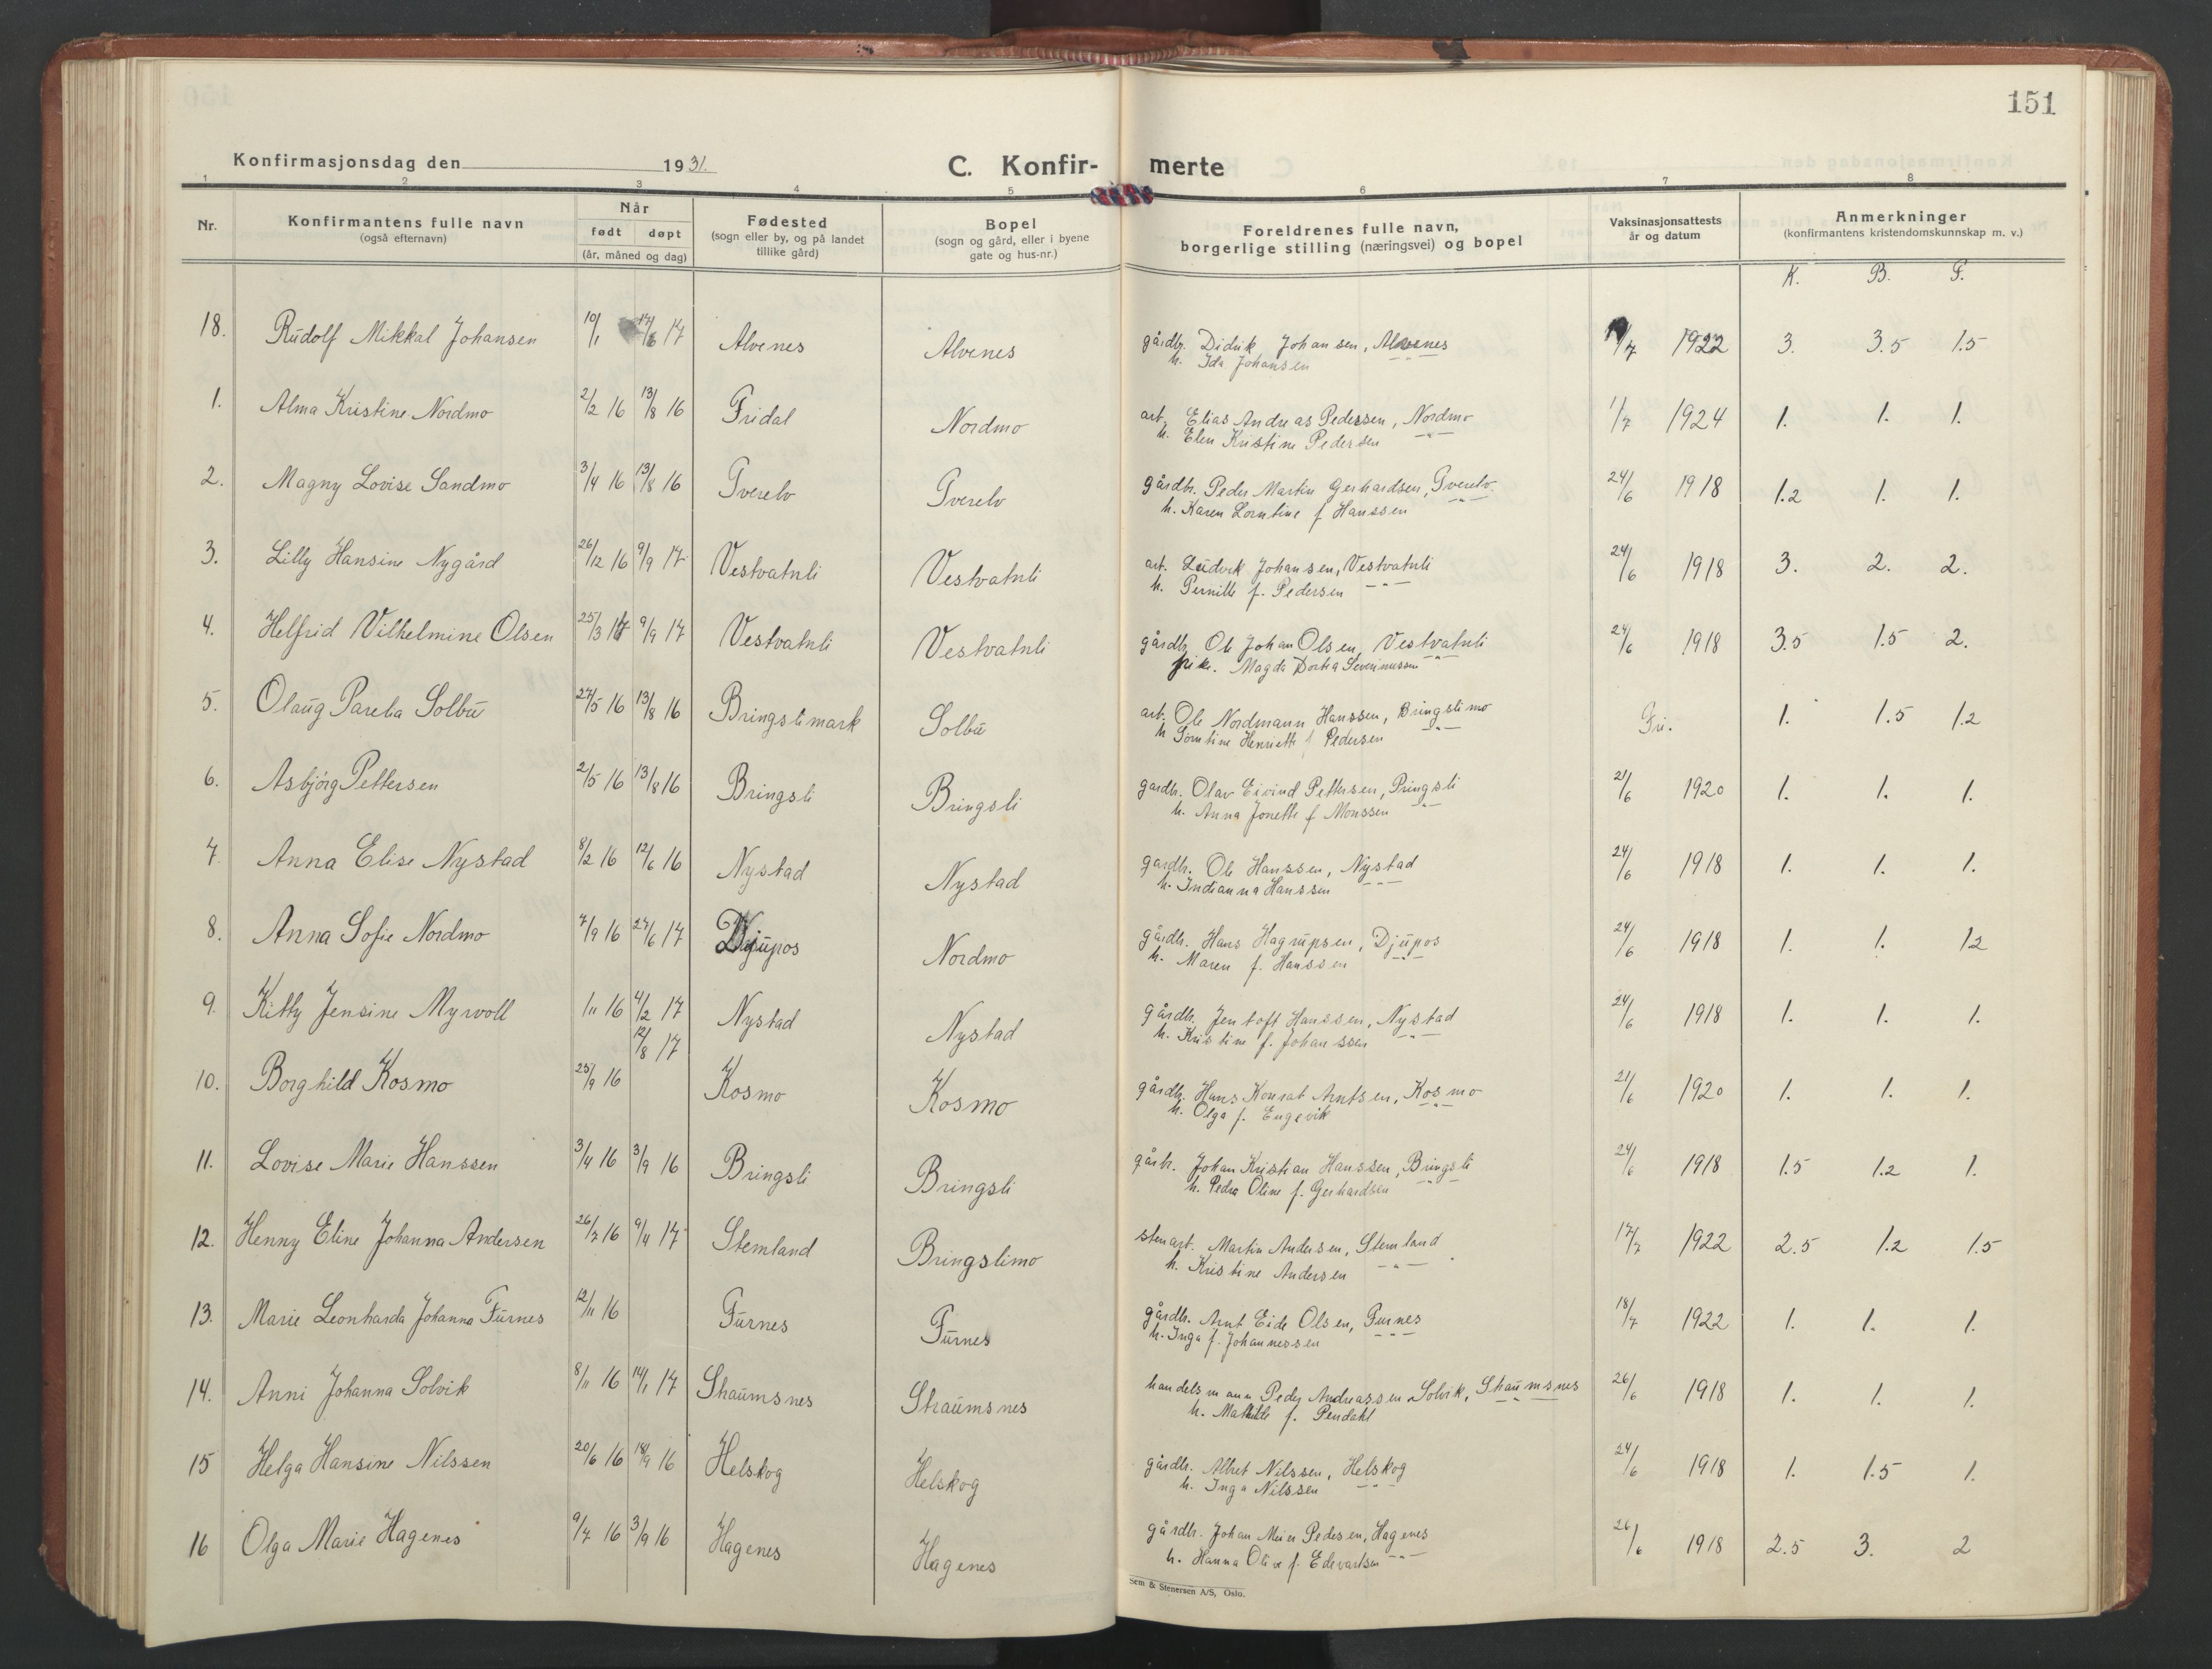 151
Konfirmasjonsdag den 1931.
C. Konfir- merte
1 2 3 4 5 6 7 8
Nr. Konfirmantens fulle navn (også efternavn) Når født døpt (år, måned og dag) Fødested (sogn eller by, og på landet tillike gård) Bopel (sogn og gård, eller i byene gate og hus-nr.) Foreldrenes fulle navn, borgerlige stilling (næringsvei) og bopel Vaksinasjonsattests år og datum Anmerkninger (konfirmantens kristendomskunnskap m. v.)
K. B. F.
18. Rudolf Mikkal Johansen 10/1 17/6 17 Alvenes Alvenes gårdbr. Didrik Johansen, Alvenes 19/7 1922 3. 3.5 1.5
h. Ida Johansen -"-
1. Alma Kristine Nordmo 2/2 16 13/8 16 Fridal Nordmo arb. Elias Andreas Pedersen, Nordmo 1/7 1924 1. 1. 1.
h. Elen Kristine Pedersen -"-
2. Magny Lovise Sandmo 3/4 16 13/8 16 Tverelv Tverelv gårdbr. Peder Martin Gerhardsen, Tverelv. 24/6 1918 1.2 1. 1.
h. Karen Lorntine f Hanssen -"-
3. Lilly Hansine Nygård 26/12 16 9/9 17 Vestvatnli Vestvatnli arb. Ludvik Johansen, Vestvatnli 24/6 1918 3. 2. 2.
h. Pernille f. Pedersen -"-
4. Helfrid Vilhelmine Olsen 25/3 17 9/9 17 Vestvatnli Vestvatnli gårdbr. Ole Johan Olsen, Vestvatnli 24/6 1918 3.5 1.5 2.
pike. Magda Dortea Severinussen -"-
5. Olaug Parelia Solbu 27/5 16 13/8 16 Bringslimark Solbu arb. Ole Nordmann Hanssen, Bringslimo Fri. 1. 1.5 1.2
h Lorntine Henriette f Pedersen -"-
6. Asbjörg Pettersen 2/5 16 13/8 16 Bringsli Bringsli gardbr. Olav Eivind Pettersen, Bringsli 21/6 1920 1. 1. 1.
h. Anna Jonette f Monssen -"-
7. Anna Elise Nystad 8/2 16 12/6 16 Nystad Nystad gardbr. Ole Hanssen, Nystad 24/6 1918 1. 1. 1.
h. Indianna Hanssen -"-
8. Anna Sofie Nordmo 7/9 16 24/6 17 Djupos Nordmo gårdbr. Hans Hagrupsen, Djupos 24/6 1918 1. 1. 1.2
h. Maren f. Hanssen -"-
9. Kitty Jensine Myrvoll 1/11 16 4/2 17 Nystad Nystad gårdbr. Jentoft Hanssen, Nystad 24/6 1918 1. 1. 1.
h. Kristine f. Johanssen -"-
10. Borghild Kosmo 25/9 16 12/8 17 Kosmo Kosmo gårdbr. Hans Konrat Arntsen, Kosmo 21/6 1920 1. 1. 1.
h. Olga f. Engevik -"-
11. Lovise Marie Hanssen 3/4 16 3/9 16 Bringsli Bringsli gårbr. Johan Kristian Hanssen, Bringsli 24/6 1918 1.5 1.2 1.
h. Pedra Oline f. Gerhardsen -"-
12. Henny Eline Johanna Andersen 26/7 16 9/4 17 Stemland Bringslimo stenarb. Martin Andersen, Stemland 17/7 1922 2.5 1.2 1.5
h. Kristine Andersen -"-
13. Marie Leonharda Johanna Furnes 12/11 16 Furnes Furnes gårdbr. Arnt Eide Olsen, Furnes 18/7 1922 1. 1. 1.
h. Inga f. Johannessen -"-
14. Anni Johanna Solvik 8/11 16 14/1 17 Straumsnes Straumsnes handelsmann Peder Andreassen Solvik, Straumsnes 26/6 1918 1. 1. 1.
h. Mathilde f. Pendahl -"-
15 Helga Hansine Nilssen 20/6 16 18/9 16 Helskog Helskog gårdbr. Albret Nilssen, Helskog 24/6 1918 1. 1.5 1.
h. Inga Nilssen -"-
16 Olga Marie Hagenes 9/7 16 3/9 16 Hagenes Hagenes gårdbr. Johan Meier Pedersen, Hagenes 26/6 1918 2.5 3. 2
h. Hanna Olive f. Edevartsen -"-
Sem & Stenersen A/S, Oslo.